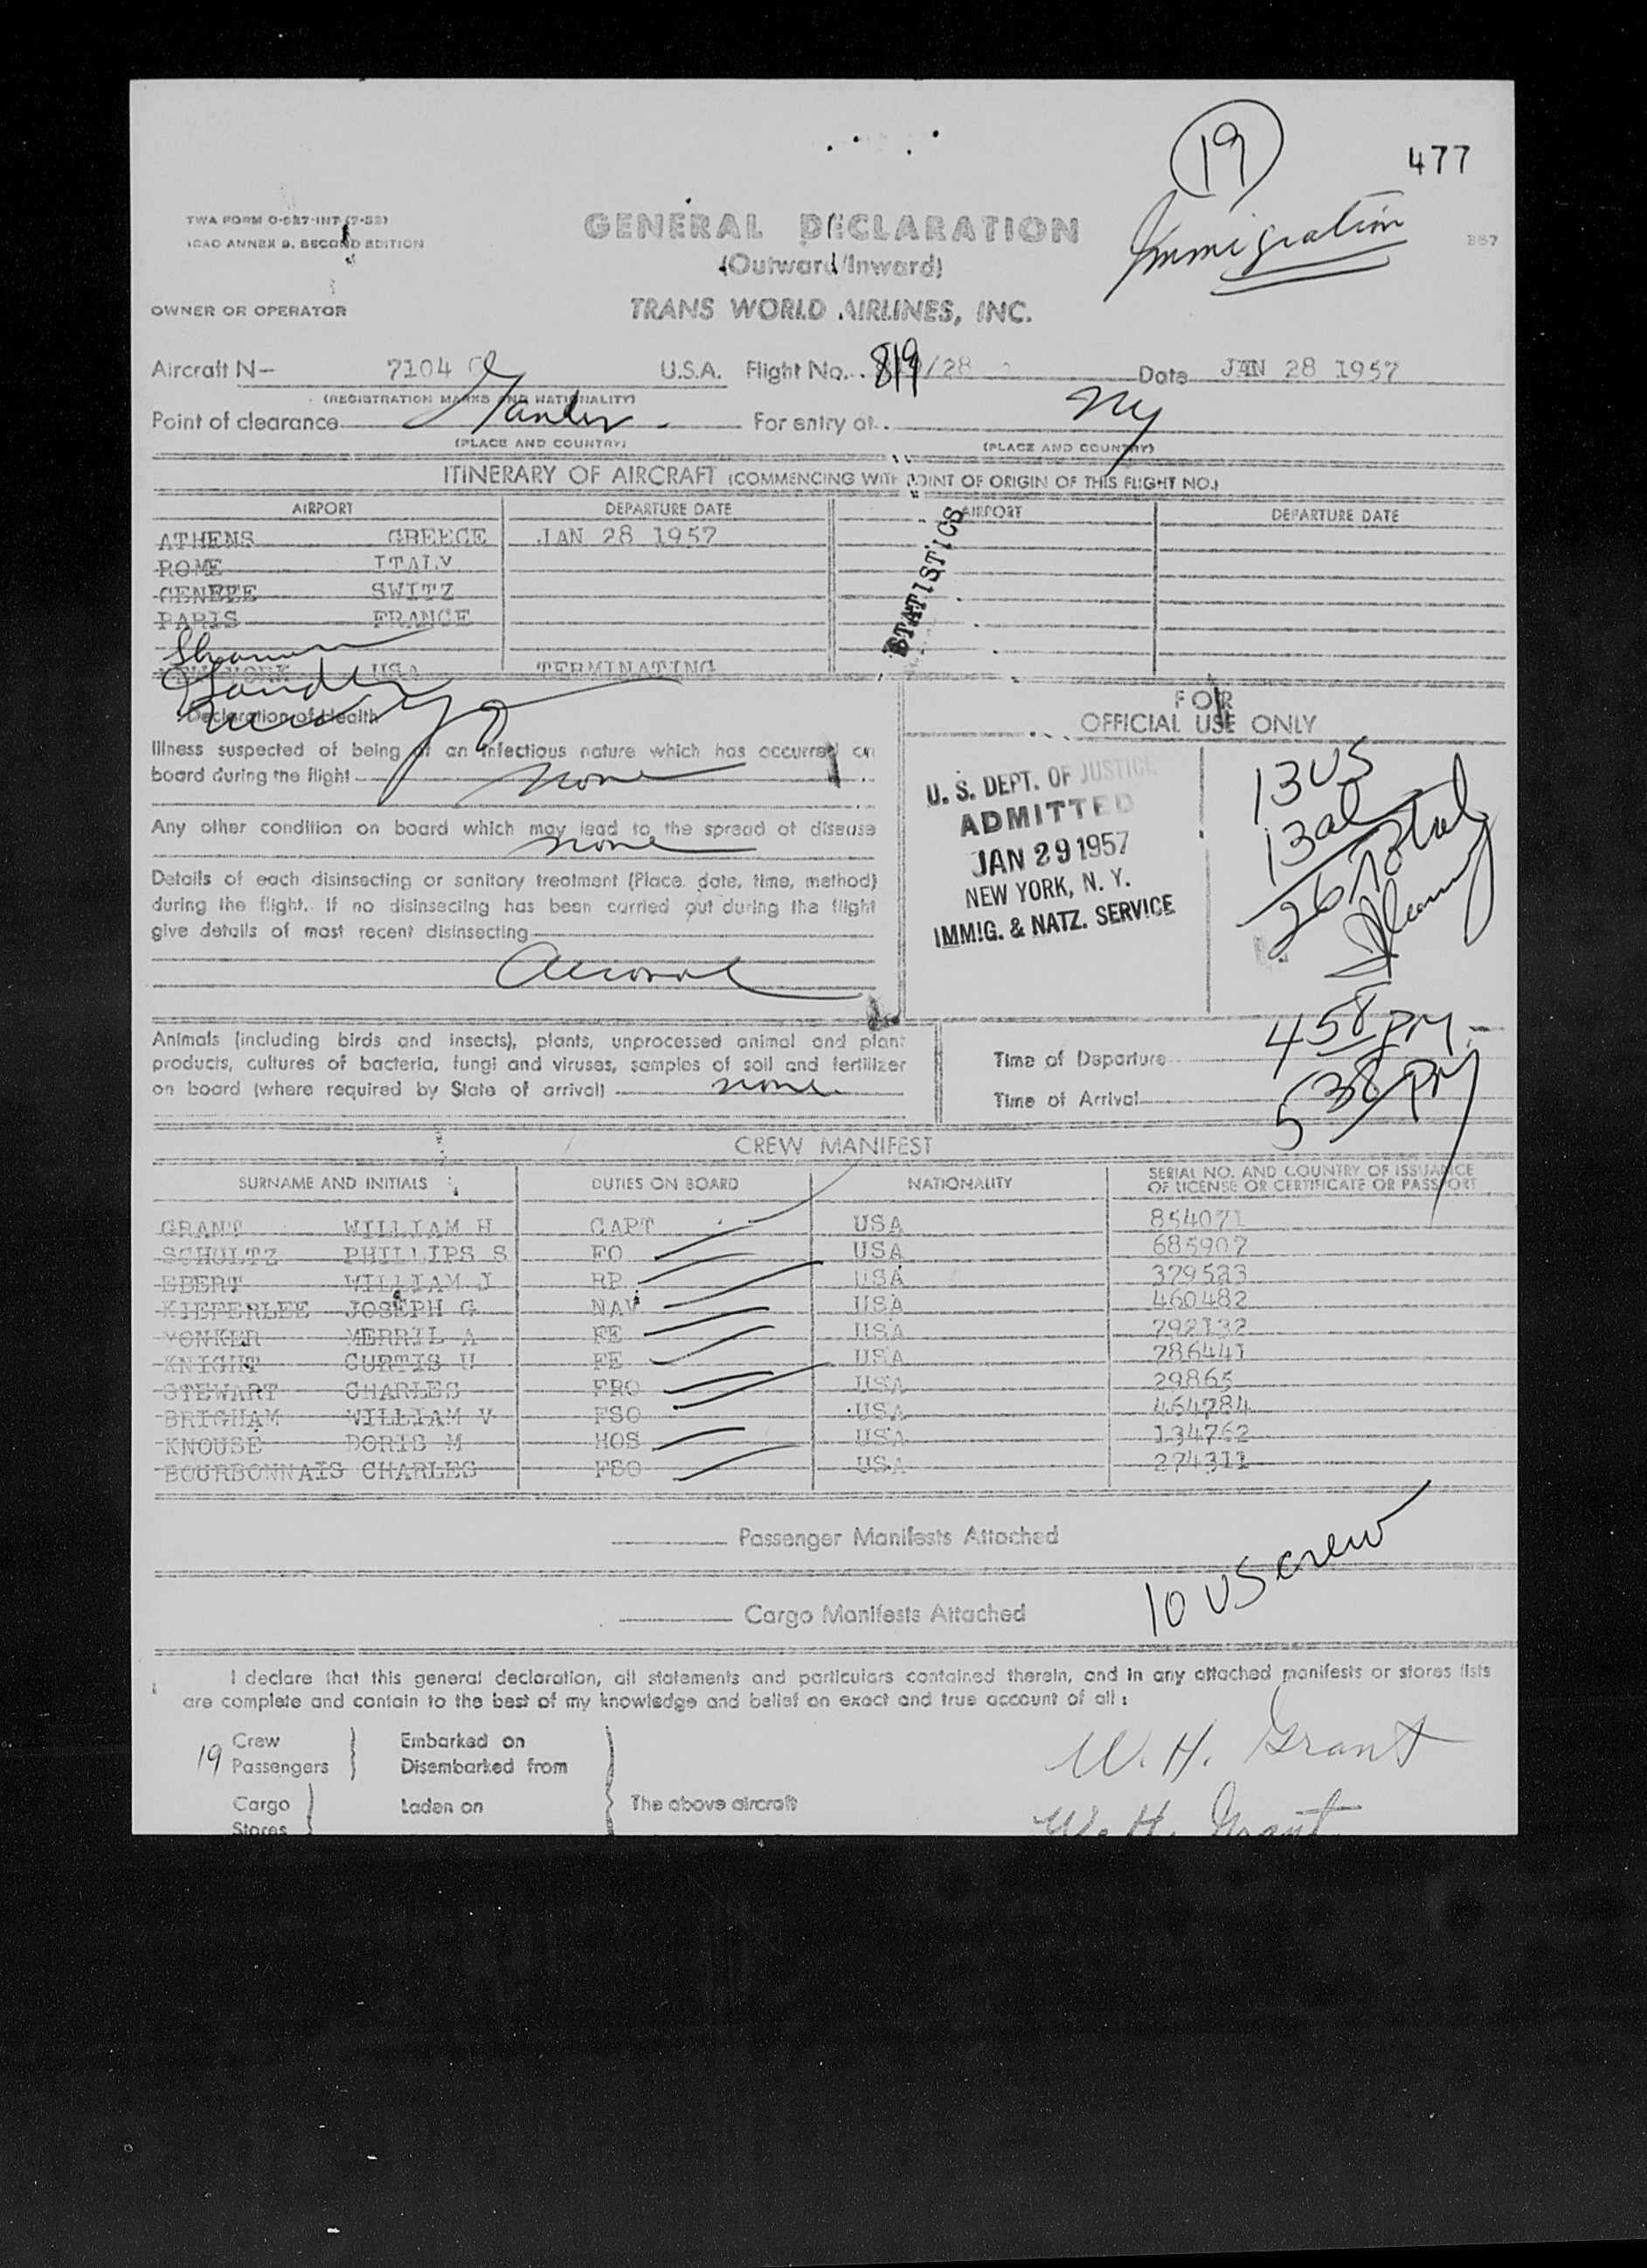 19
477
TWA FORM O-027-INT (7-52)
ICAO ANNEX 9, SECOND EDITION
GENERAL DECLARATION
Immigration
367
(Outward/Inward)
OWNER OR OPERATOR
TRANS WORLD AIRLINES, INC.
Aircraft N- 7104 C U.S.A. Flight No. 819/28 Date JAN 28 1957
(REGISTRATION MARKS AND NATIONALITY)
Point of clearance Gander For entry at NY
(PLACE AND COUNTRY) (PLACE AND COUNTRY)
ITINERARY OF AIRCRAFT (COMMENCING WITH POINT OF ORIGIN OF THIS FLIGHT NO.)
AIRPORT DEPARTURE DATE AIRPORT DEPARTURE DATE
ATHENS GREECE JAN 28 1957
ROME ITALY
SWITZ
PARIS FRANCE
STATISTICS
Shannon
NEW YORK USA TERMINATING
Gander
Declaration of Health
FOR
OFFICIAL USE ONLY
Illness suspected of being of an infectious nature which has occurred on
board during the flight none
Any other condition on board which may lead to the spread of disease
none
Details of each disinsecting or sanitary treatment (Place, date, time, method)
during the flight. If no disinsecting has been carried out during the flight
give details of most recent disinsecting
Aerosol
U. S. DEPT. OF JUSTICE
ADMITTED
JAN 29 1957
NEW YORK, N. Y.
IMMIG. & NATZ. SERVICE
13 US
13 al
26 Total
Animals (including birds and insects), plants, unprocessed animal and plant
products, cultures of bacteria, fungi and viruses, samples of soil and fertilizer
on board (where required by State of arrival) none
Time of Departure 458 PM
Time of Arrival 538 PM
CREW MANIFEST
SURNAME AND INITIALS DUTIES ON BOARD NATIONALITY SERIAL NO. AND COUNTRY OF ISSUANCE
OF LICENSE OR CERTIFICATE OR PASSPORT
GRANT WILLIAM H CAPT USA 854071
SCHULTZ PHILLIPS S FO USA 685907
EBERT WILLIAM J RP USA 379523
KIEFERLEE JOSEPH G NAV USA 460482
YONKER MERRIL A FE USA 792132
KNIGHT CURTIS U FE USA 786441
STEWART CHARLES FRO USA 29865
BRIGHAM WILLIAM V FSO USA 464284
KNOUSE DORIS M HOS USA 134762
BOURBONNAIS CHARLES FSO USA 274311
Passenger Manifests Attached
10 US crew
Cargo Manifests Attached
I declare that this general declaration, all statements and particulars contained therein, and in any attached manifests or stores lists
are complete and contain to the best of my knowledge and belief an exact and true account of all:
Crew Embarked on
19 Passengers Disembarked from
W. H. Grant
Cargo Laden on The above aircraft
Stores
W. H. Grant